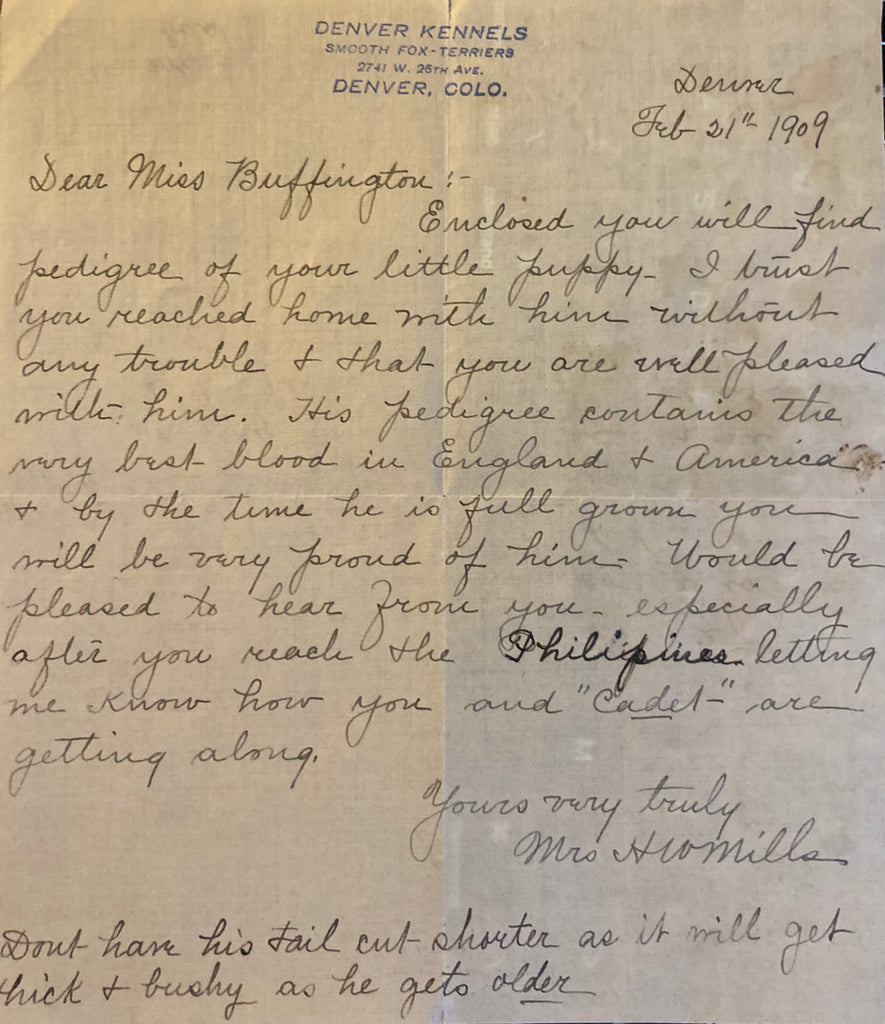 DENVER KENNELS
SMOOTH FOX-TERRIERS
2741 W. 26TH AVE.
DENVER, COLO.
Denver
Feb 21th 1909
Dear Miss Buffington :-
Enclosed you will find
pedigree of your little puppy - I trust
you reached home with him without
any trouble & that you are well pleased
with him. His pedigree contains the
very best blood in England & America
& by the time he is full grown you
will be very proud of him - Would be
pleased to hear from you - especially
after you reach the Philipines letting
me know how you and "Cadet-" are
getting along.
Yours very truly
Mrs H W Mills
Dont have his tail cut shorter as it will get
thick & bushy as he gets older